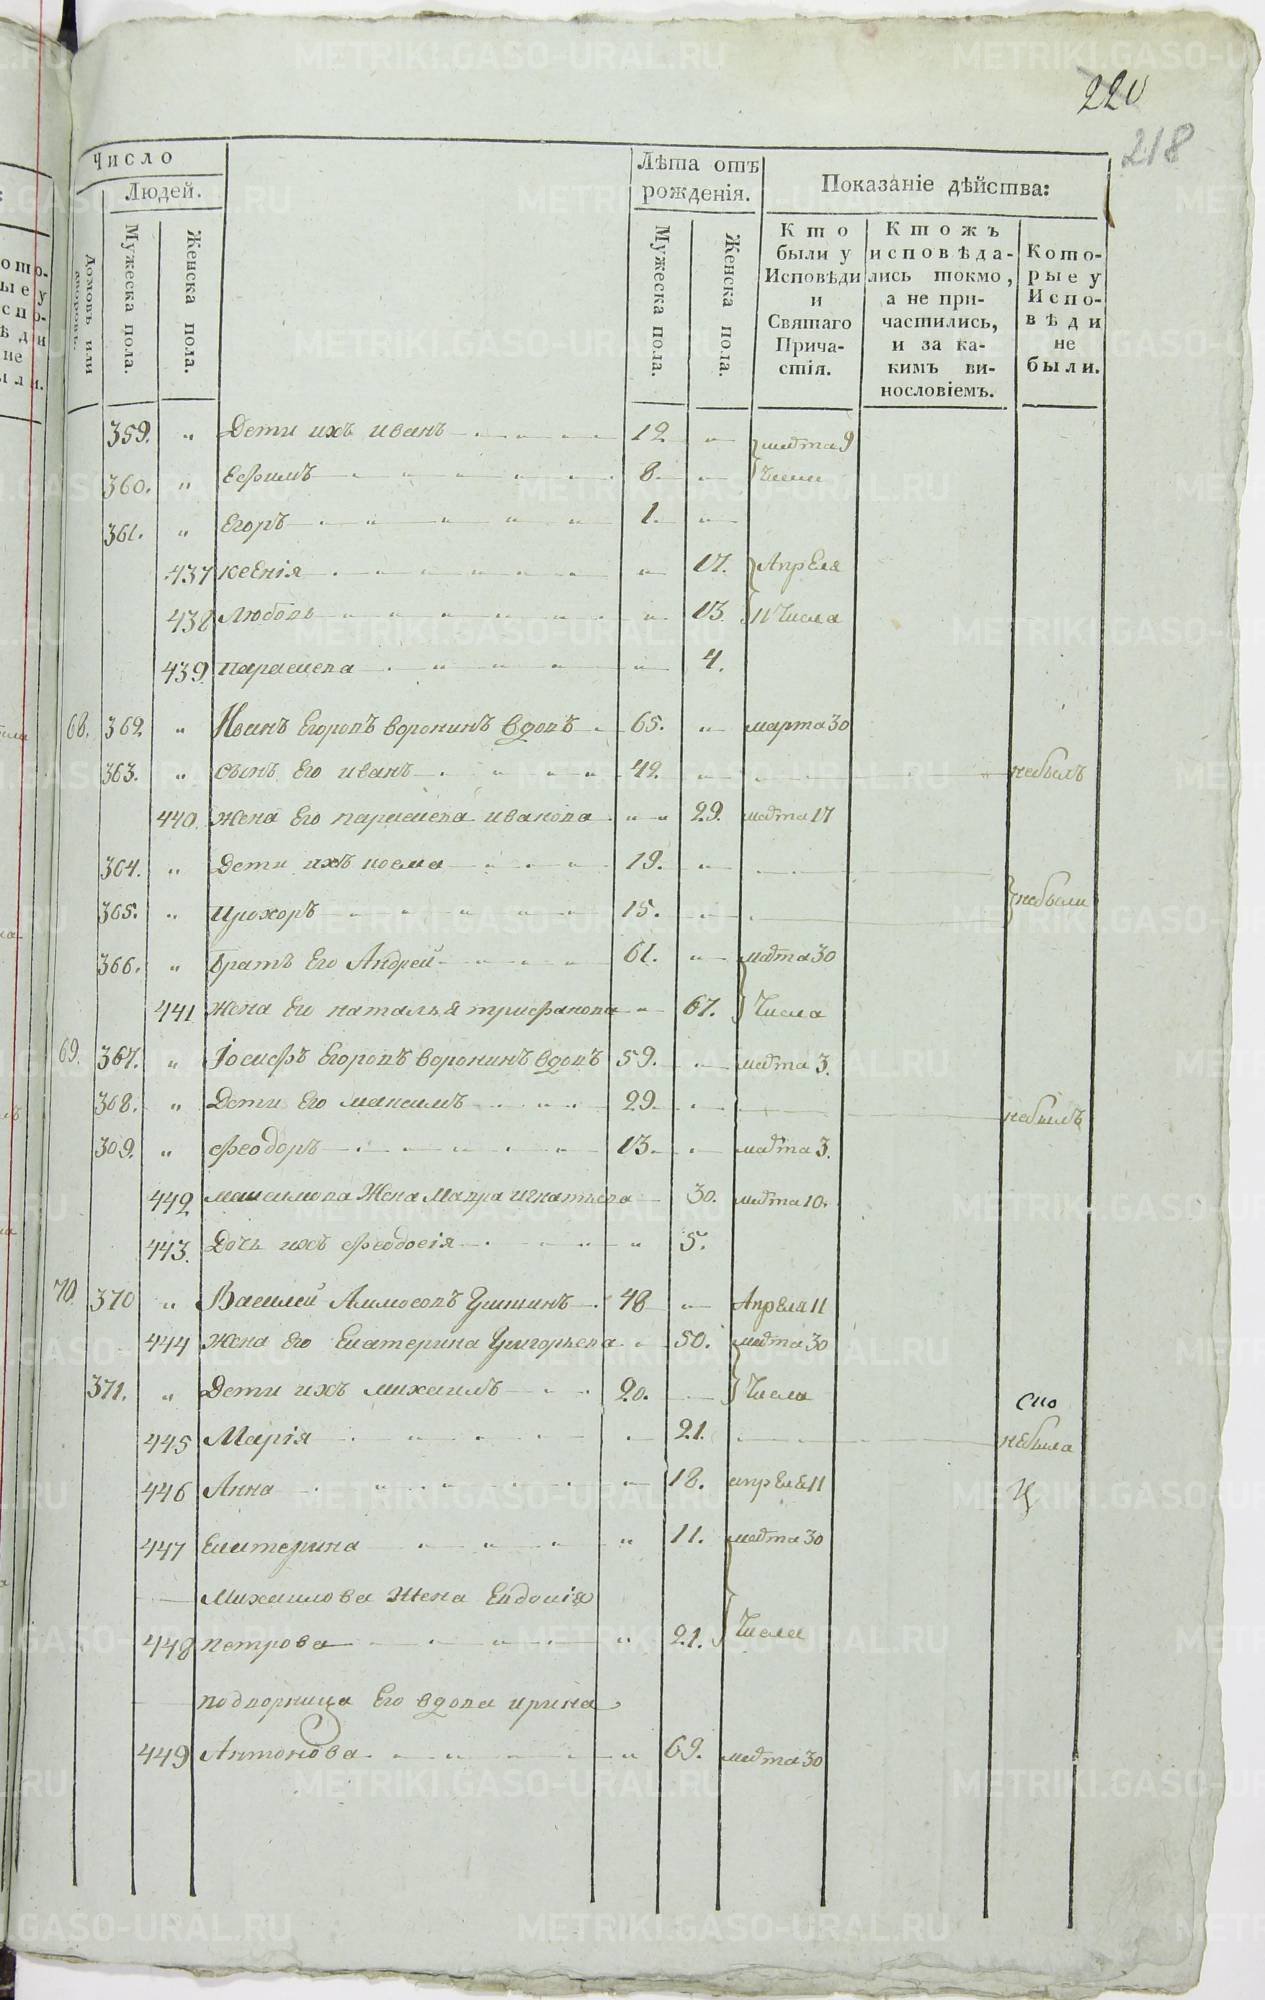 220
218
Число
Людей.
Домовъ или дворовъ.
Мужеска пола.
Женска пола.
Лѣта отъ рожденія.
Мужеска пола.
Женска пола.
Показаніе дѣйства:
Кто были у Исповѣди и Святаго Причастія.
Ктожъ исповѣдались токмо, а не причастились, и за какимъ винословіемъ.
Которые у Исповѣди не были.
359. „ Дети ихъ иванъ 12 „ марта 9
360. „ Ефимъ 8. „ Числа
361. „ Егоръ 1. „
437 ксенія „ 17. Апреля
438 Любовь „ 13. 11 Числа
439 параскева „ 4.
68. 362 „ Иванъ Егоровъ воронинъ вдовъ 65. „ марта 30
363. „ сынъ Его иванъ 42. „ небылъ
440. жена Его параскева иванова „ 29. марта 17
364. „ Дети ихъ козма 19. „
365. „ прохоръ 15. „ небыли
366. „ братъ Его Андрей 61. „ марта 30
441 жена Его наталья трифанова „ 67. Числа
69. 367. „ Іосифъ Егоровъ воронинъ вдовъ 59. „ марта 3.
368. „ Дети Его максимъ 29. „ небылъ
369. „ феодоръ 13. „ марта 3.
442 максимова Жена Мавра игнатьева 30. марта 10.
443. Дочь ихъ феодосія „ 5.
70. 370 „ Василей Аммосовъ 48 „ Апреля 11
444 жена Его Екатерина Григорьева „ 50. марта 30
371. „ Дети ихъ михаилъ 20. Числа
445 Марія „ 21. небыла
446 Анна „ 18. апреля 11
447 Екатерина „ 11. марта 30
Михаилова Жена Евдокія
448 петрова „ 21. Числа
подворница Его вдова ирина
449 Антонова „ 69. марта 30
METRIKI.GASO-URAL.RU